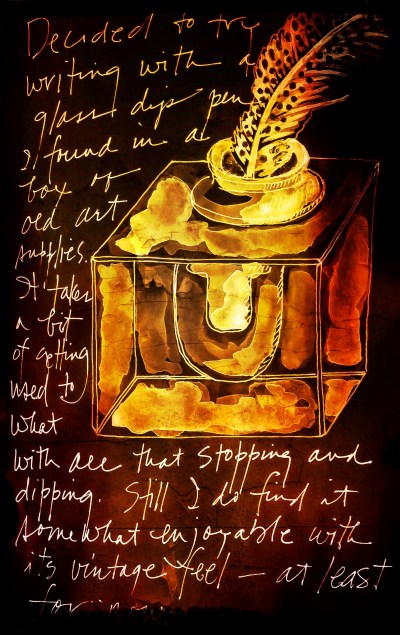 Decided to try
writing with a
glass dip pen
I found in a
box of
old art
supplies.
It takes
a bit
of getting
used to
what
with all that stopping and
dipping. Still I do find it
somewhat enjoyable with
its vintage feel — at least
for